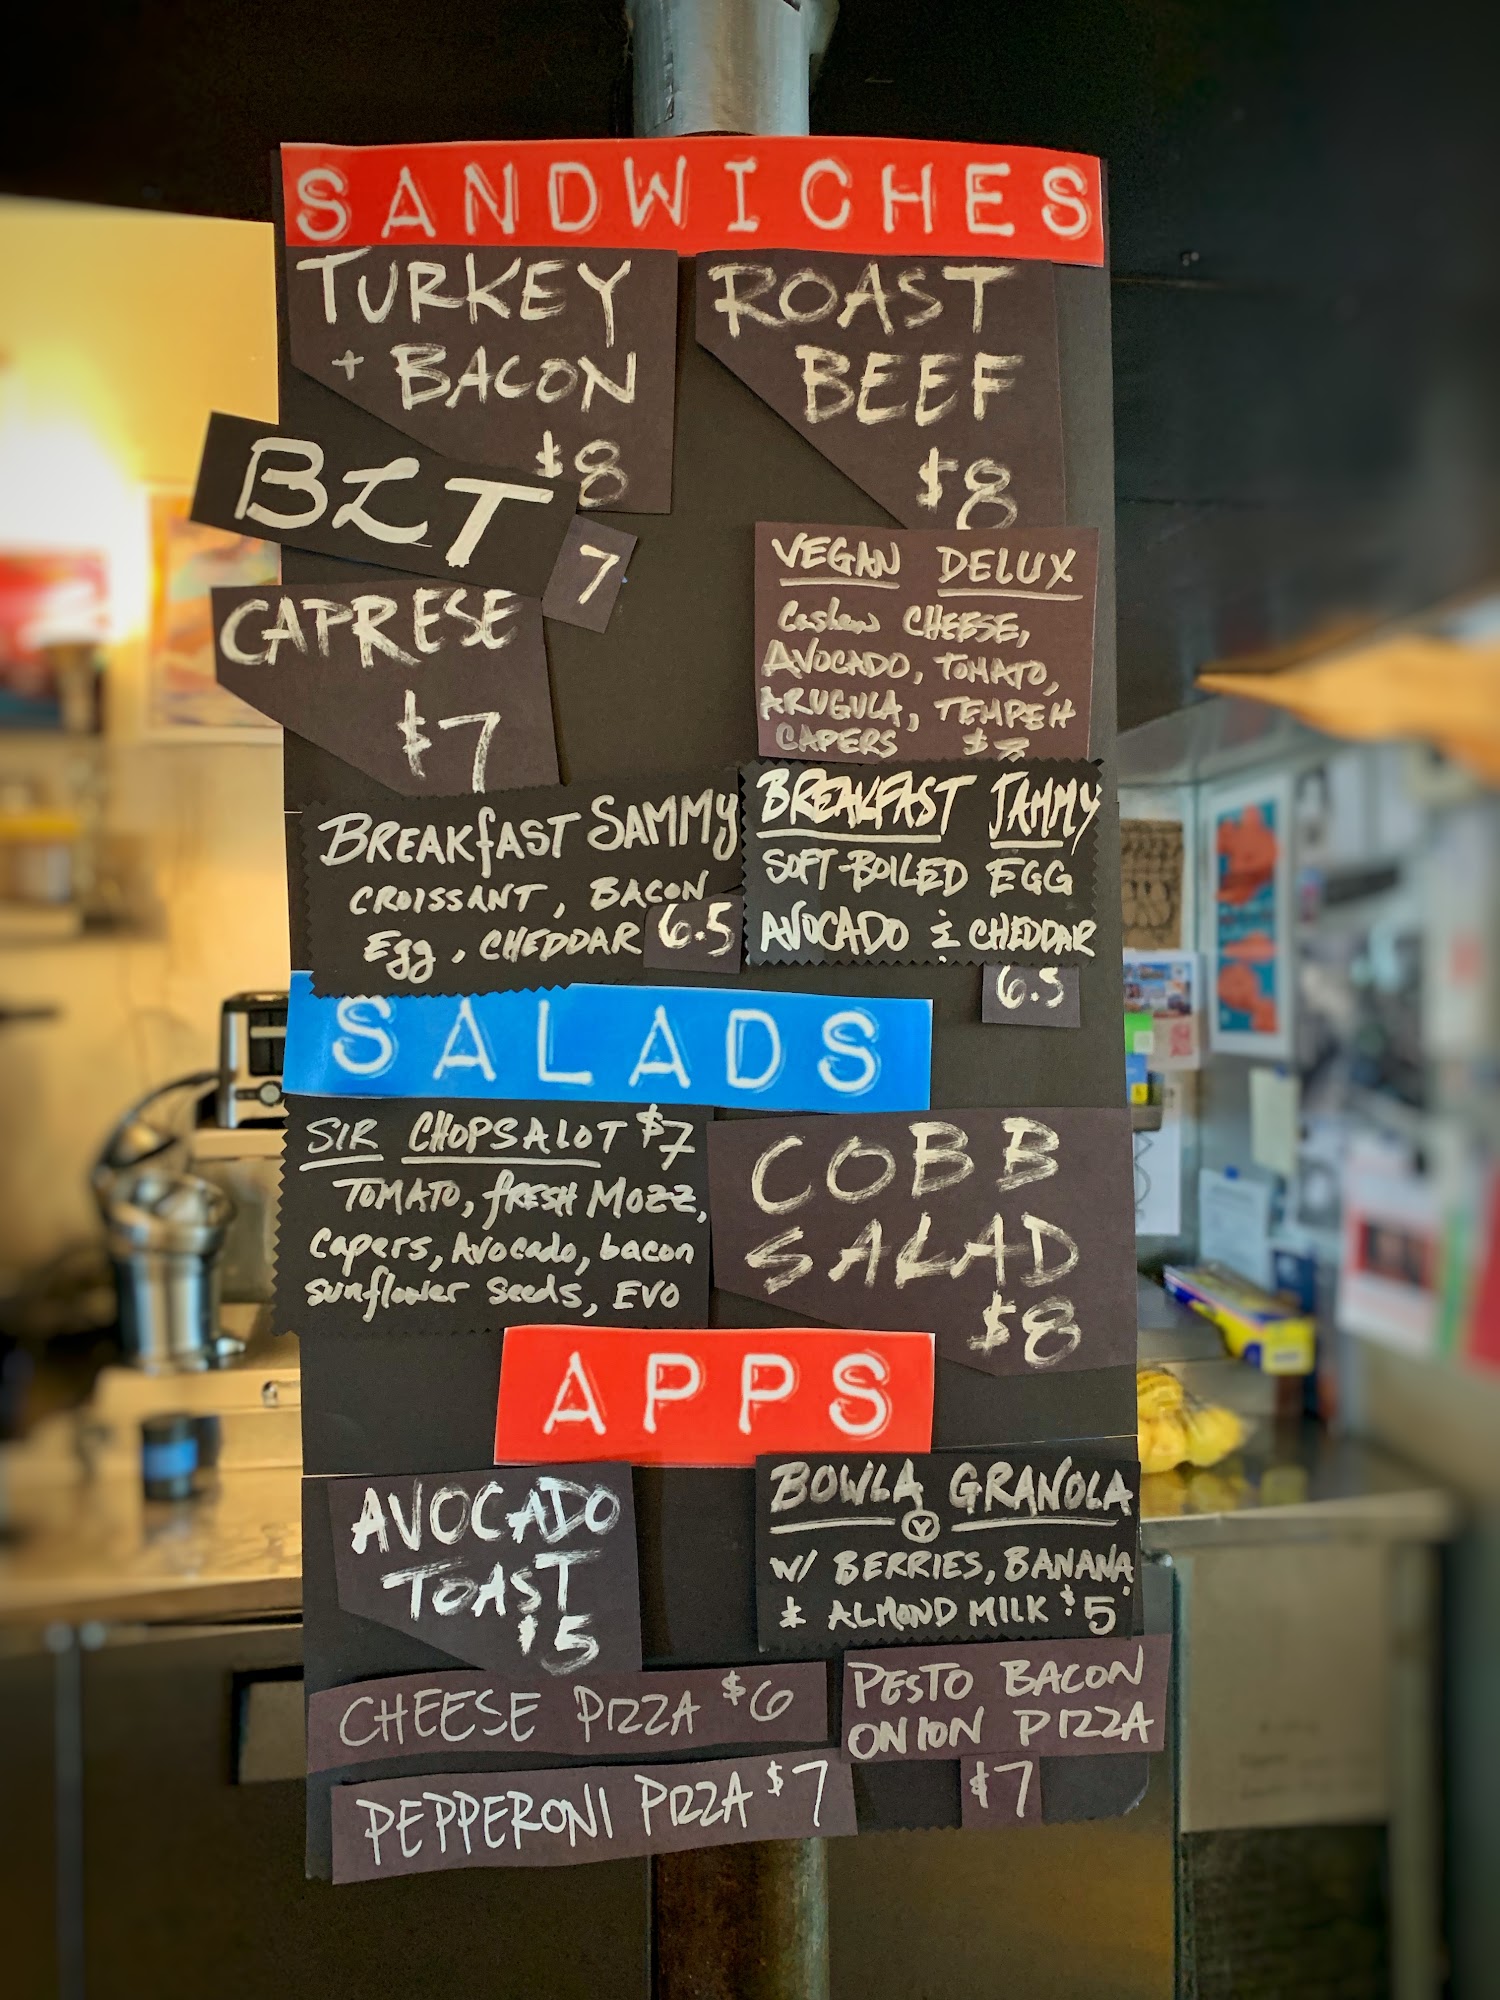 SANDWICHES
TURKEY
+ BACON
$8
ROAST
BEEF
$8
BLT
7
CAPRESE
$7
VEGAN DELUX
Cashew CHEESE,
AVOCADO, TOMATO,
ARUGULA, TEMPEH
CAPERS $
BREAKfAST SAMMY
CROISSANT, BACON
Egg, CHEDDAR 6.5
BREAKFAST JAMMY
SOFT-BOILED EGG
AVOCADO & CHEDDAR
6.5
SALADS
SIR CHOPSALOT $7
TOMATO, fRESH MOZZ,
Capers, Avocado, bacon
sunflower seeds, EVO
COBB
SALAD
$8
APPS
AVOCADO
TOAST
$5
BOWLA GRANOLA
V
W/ BERRIES, BANANA
& ALMOND MILK $5
CHEESE PIZZA $6
PESTO BACON
ONION PIZZA
$7
PEPPERONI PIZZA $7